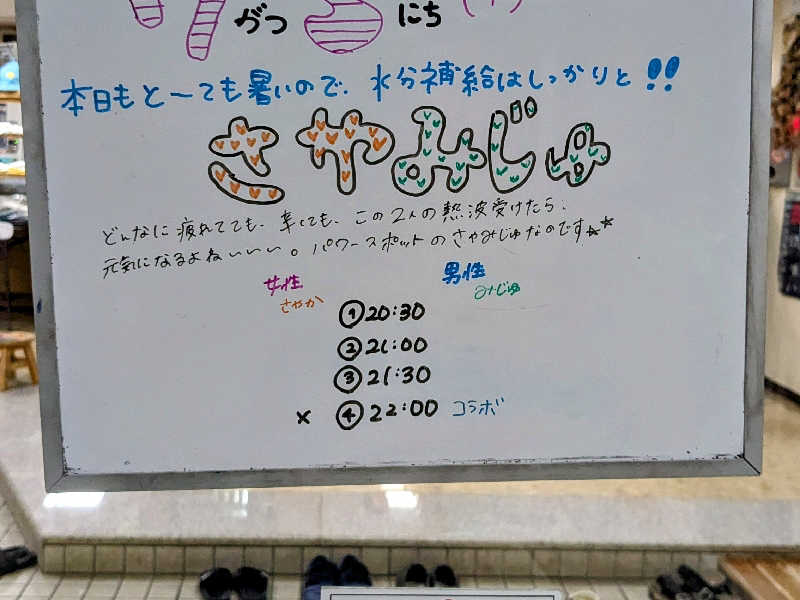 がつ にち
本日もとーても暑いので、水分補給はしっかりと!!
さやみじゅ
どんなに疲れてても、辛くても、この2人の熱波受けたら、
元気になるよねぃぃぃ。パワースポットのさやみじゅなのです☆☆
女性 男性
さやか みじゅ
①20:30
②21:00
③21:30
× ④22:00 コラボ